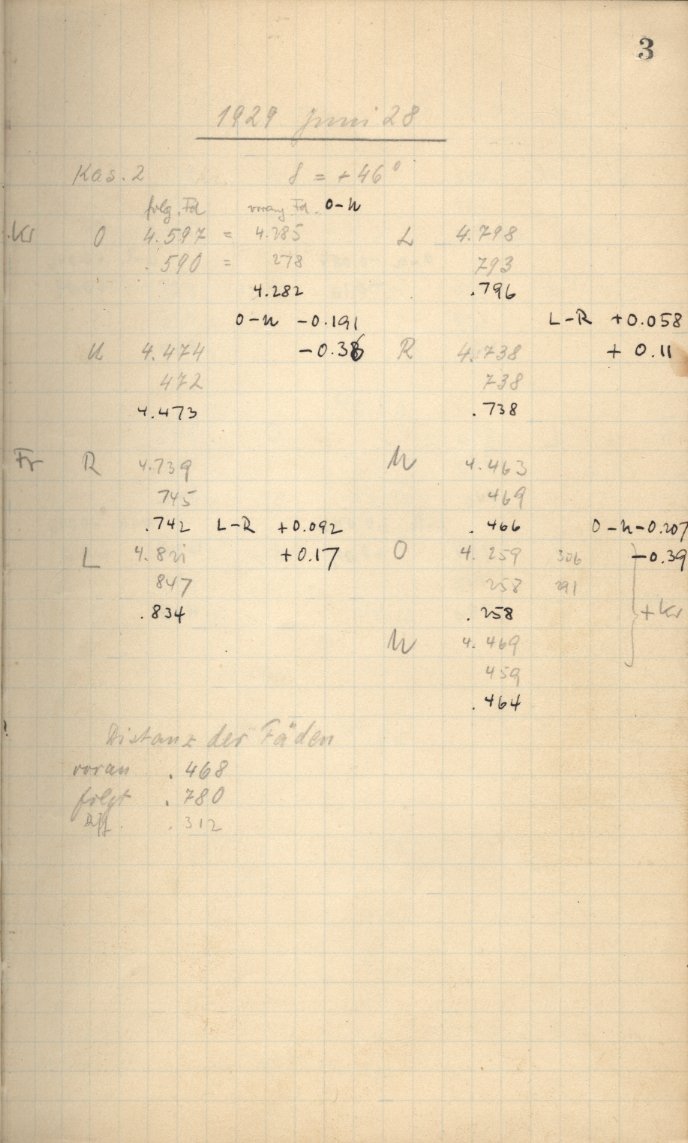 3
1929 Juni 28
Kas. 2 δ = +46°
folg. Fd vorang. Fd. O-U
Kr O 4.597 = 4.285 L 4.798
.590 = 278 793
4.282 .796
O-U -0.191 L-R +0.058
U 4.474 -0.38 R 4.738 + 0.11
472 738
4.473 .738
Fr R 4.739 U 4.463
745 469
.742 L-R +0.092 .466 O-U-0.207
L 4.821 +0.17 O 4.259 306 -0.39
847 258 291
.834 .258 +Kr
U 4.469
459
.464
Distanz der Fäden
voran .468
folgt .780
Diff. .312